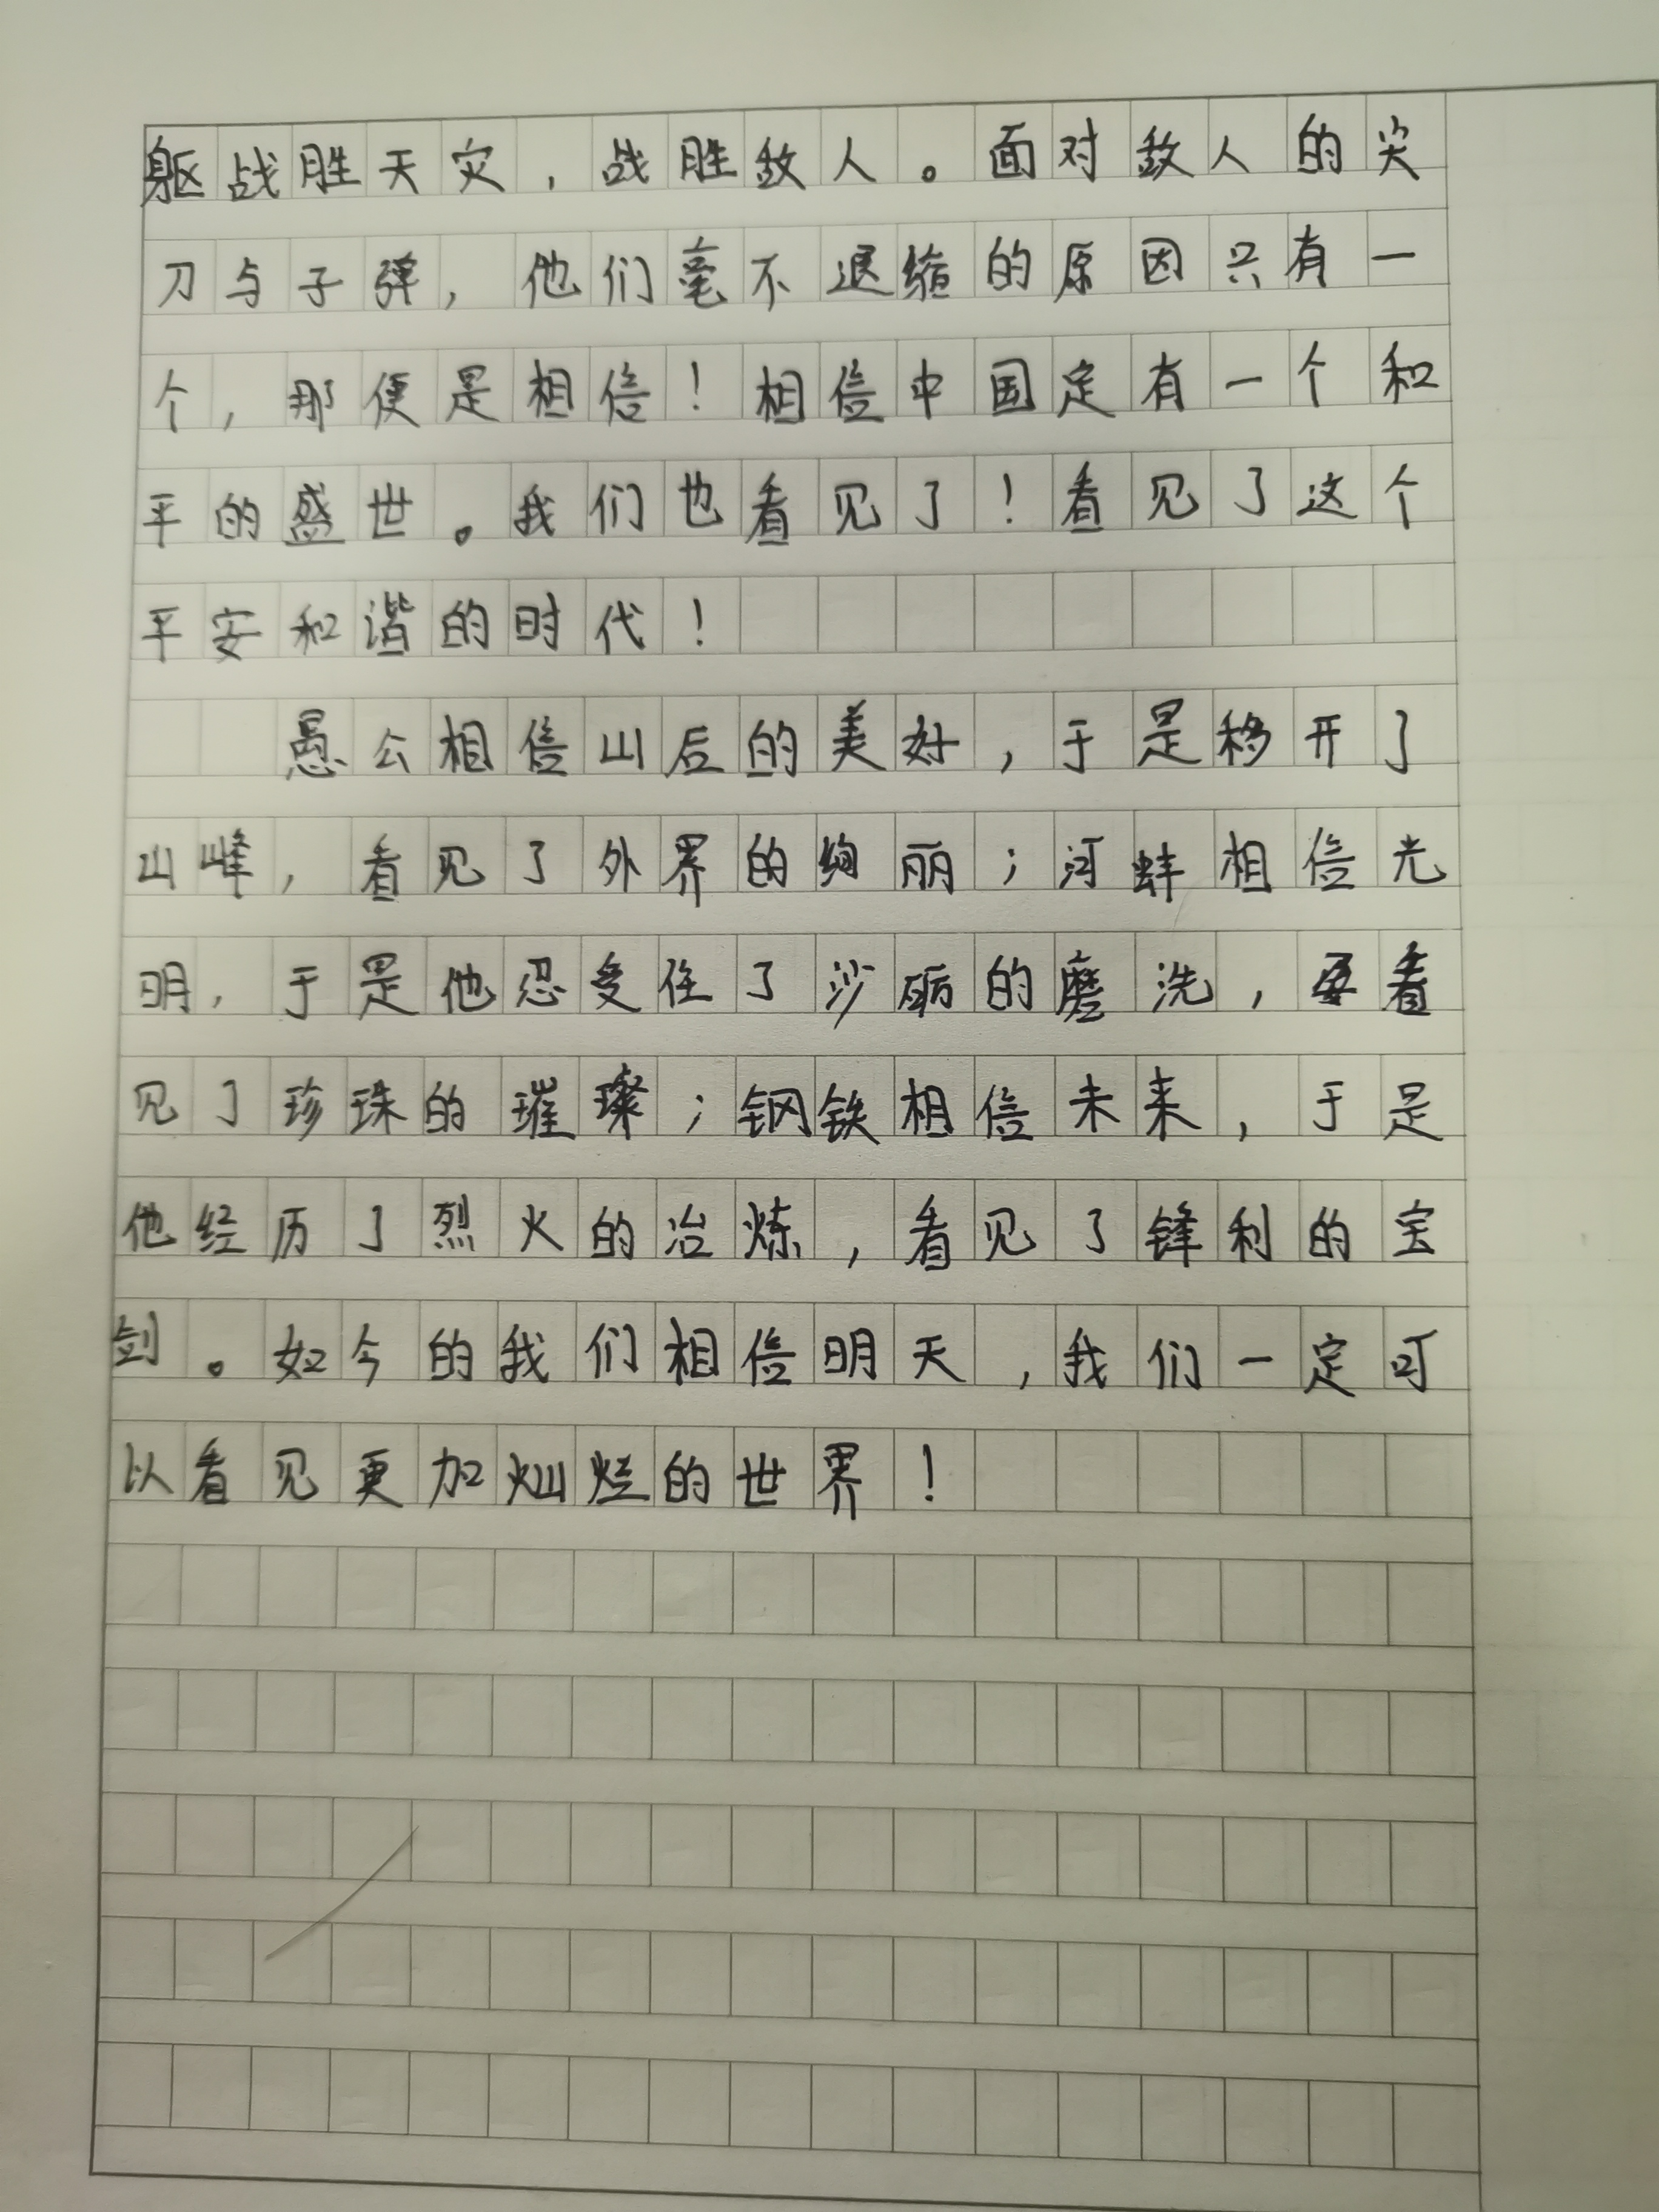 躯战胜天灾，战胜敌人。面对敌人的尖
刀与子弹，他们毫不退缩的原因只有一
个，那便是相信！相信中国定有一个和
平的盛世。我们也看见了！看见了这个
平安和谐的时代！
愚公相信山后的美好，于是移开了
山峰，看见了外界的绚丽；河蚌相信光
明，于是他忍受住了沙砺的磨洗，看
见了珍珠的璀璨；钢铁相信未来，于是
他经历了烈火的冶炼，看见了锋利的宝
剑。如今的我们相信明天，我们一定可
以看见更加灿烂的世界！